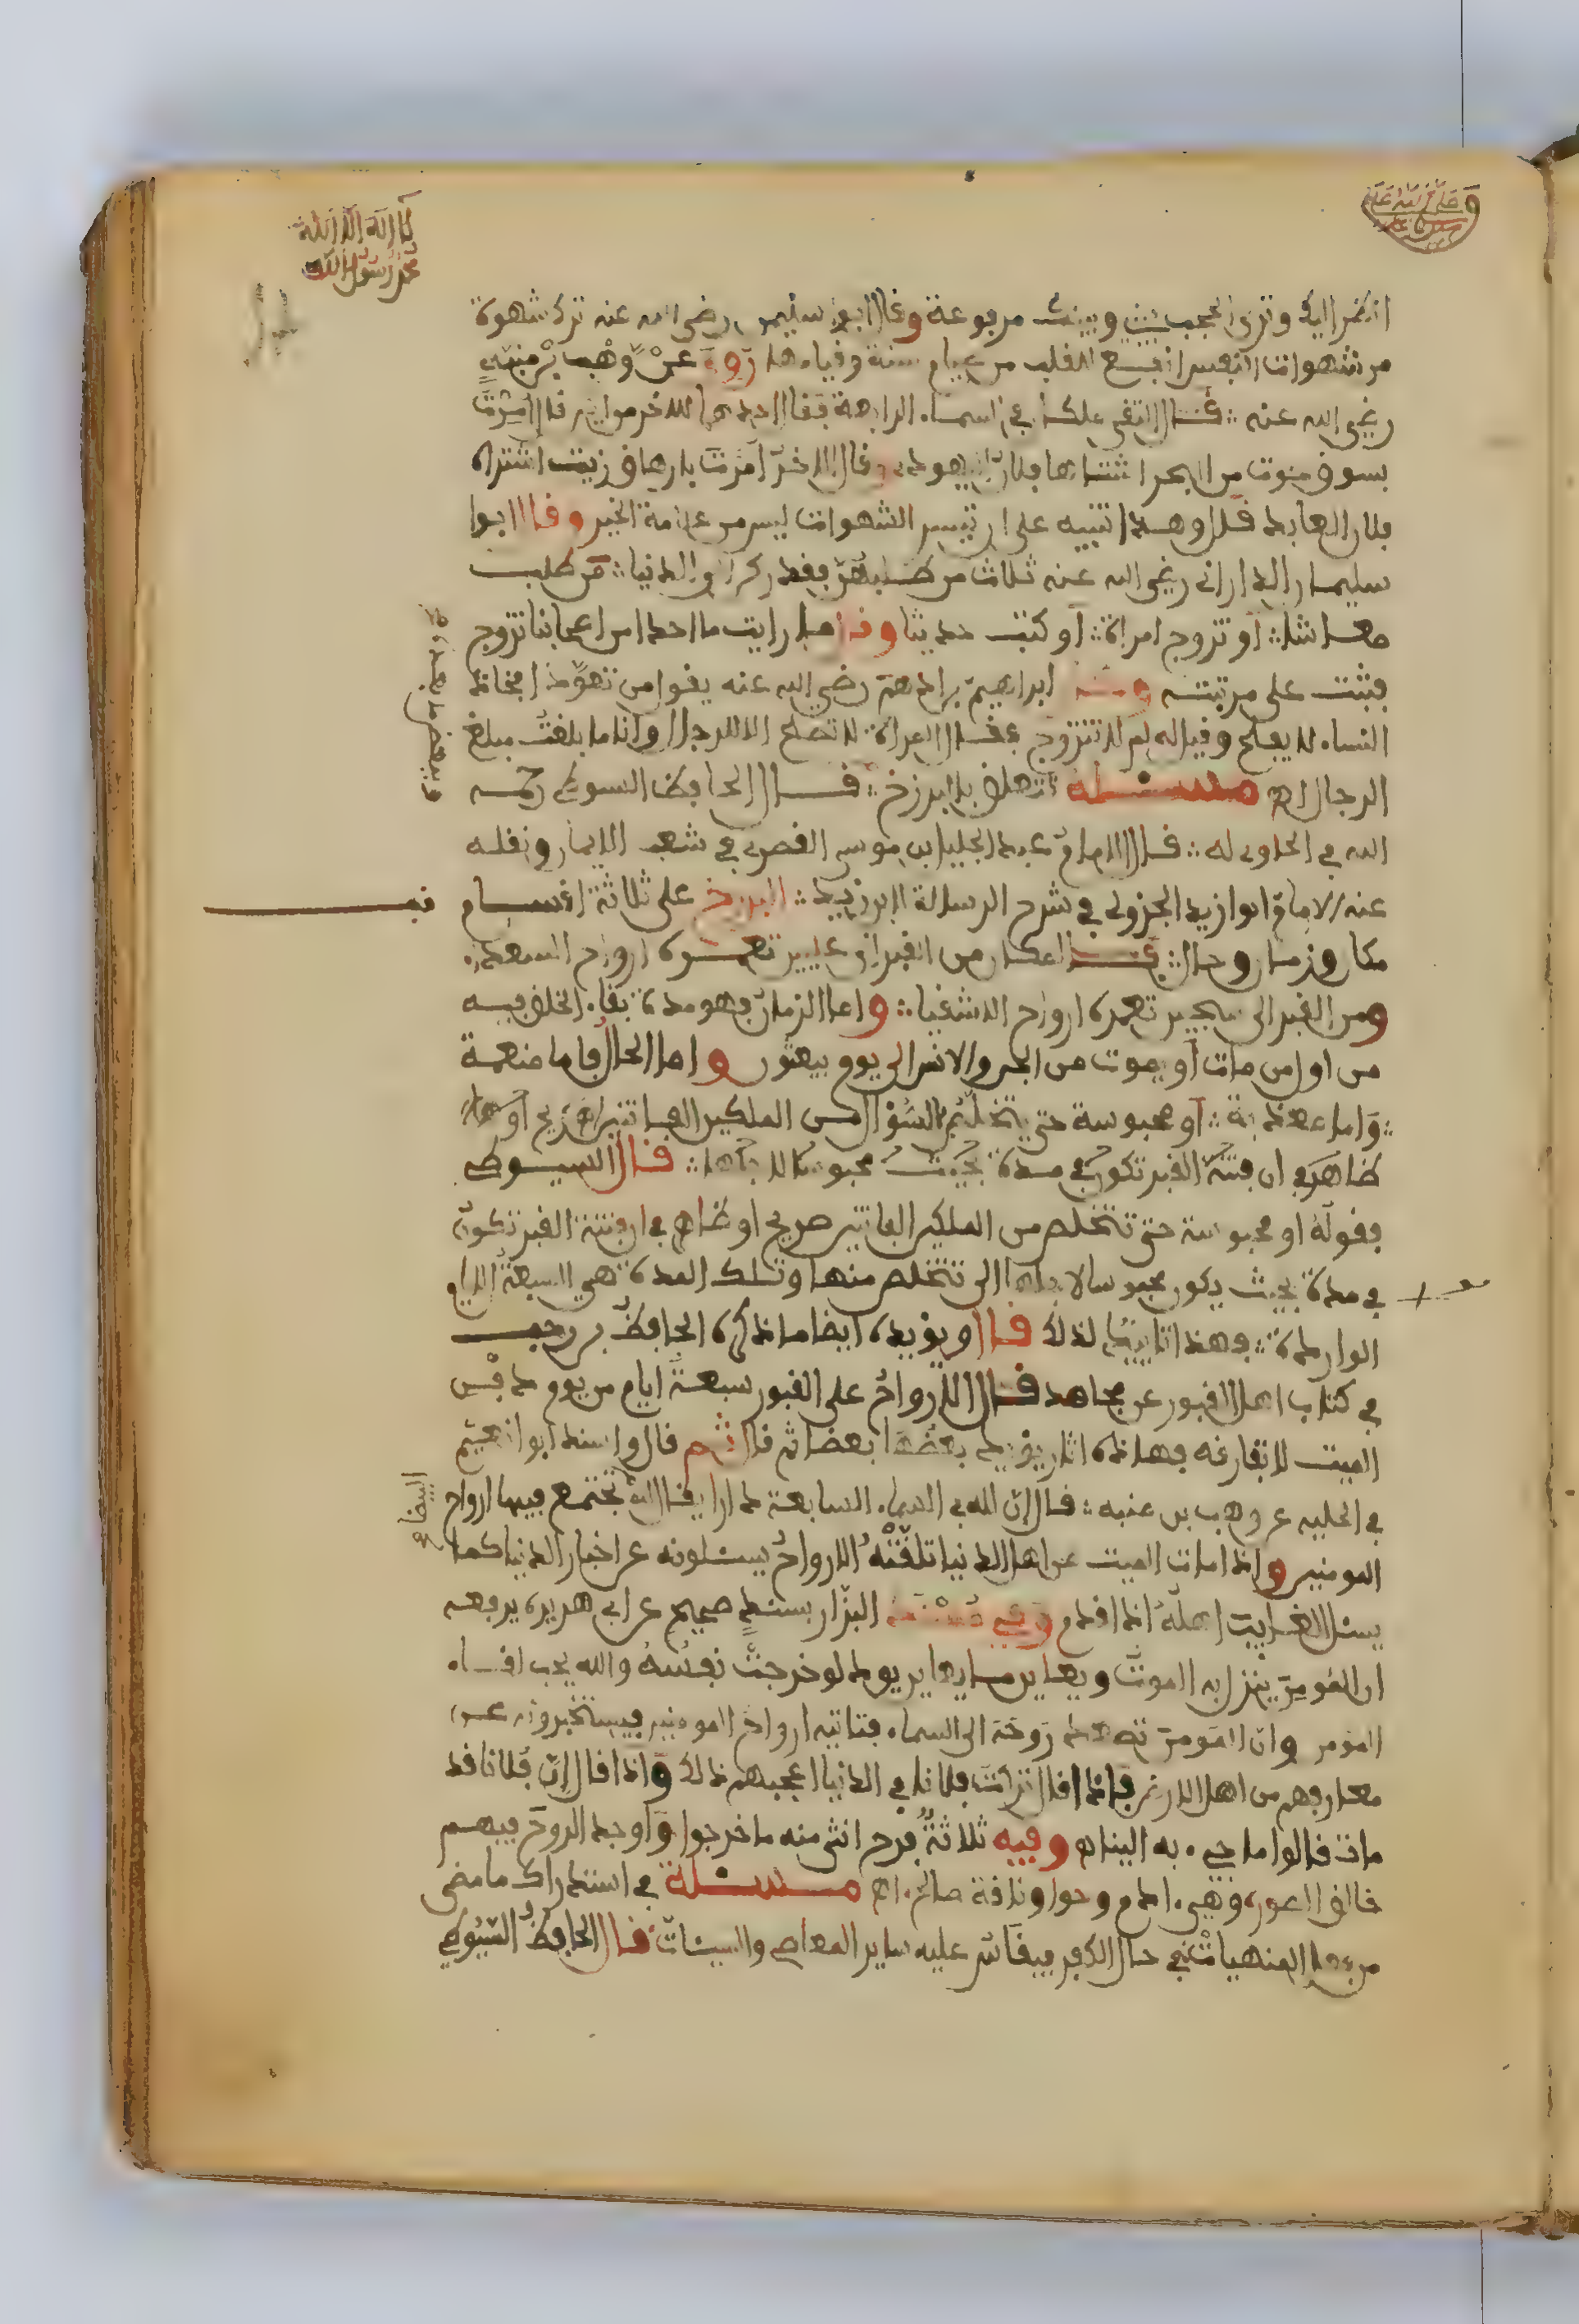 لا اله الا الله
محمد رسول الله
انظر اليك وترى الحجب بيني وبينك مرفوعة وقال ابو سليمن رضي الله عنه ترك شهوة
من شهوات النفس انفع للقلب من صيام سنة وقيامها روي عن وهب بن منبه
رضي الله عنه قال التقى ملكان في السماء الرابعة فقال احدهما للاخر من اين قال امرت
بسوق حوت من البحر اشتهاها فلان اليهودي وقال الاخر امرت باهراق زيت اشتهاه
فلان العابد قال وهذا تنبيه على ان تيسير الشهوات ليس من علامة الخير وقال ابوا
سليمان الداراني رضي الله عنه ثلاث من طلبهن فقد ركن الى الدنيا من طلب
معاشا او تزوج امراة او كتب حديثا وقال ما رايت احدا من اصحابنا تزوج
فثبت على مرتبته ابراهيم بن ادهم رضي الله عنه يقول من تعود افخاذ
النساء لا يفلح وقيل له لم لا تتزوج فقال المراة لا تصلح الا للرجال وانا ما بلغت مبلغ
الرجال اهـ مسئلة تتعلق بالبرزخ قال الحافظ السيوطي رحمه
الله في الحاوي له قال الامام عبد الجليل بن موسى القصري في شعب الايمان ونقله
عنه الامام ابوا زيد الجزولي في شرح الرسالة البرزخ على ثلاثة اقسام
مكان وزمان وحال فالمكان من القبر الى عليين تعمره ارواح السعداء
ومن القبر الى سجين تعمره ارواح الاشقياء واما الزمان فهو مدة بقاء الخلق فيه
من اول من مات او يموت من الجن والانس الى يوم يبعثون واما الحال فاما منعمة
واما معذبة او محبوسة حتى تتخلص بالسؤال من الملكين الفتانين او
ظاهر في ان فتنة القبر تكون في مدة بحيث محبوسا لاجلها قال السيوطي
فقوله او محبوسة حتى تتخلص من الملكين الفاتنين صريح او ظاهر في ان فتنة القبر تكون
في مدة بحيث يكون محبوسا لاجلها الى تتخلص منها وتلك المدة هي السبعة الايام
الواردة فهذا تاييد لذلك قال ويؤيده ايضا ما ذكره الحافظ بن رجب
في كتاب اهل القبور عن مجاهد قال الارواح على القبور سبعة ايام من يوم دفن
الميت لا تفارقه فهاذه اثار يؤيد بعضها بعضا ثم قال واسند ابوا نعيم
في الحليه عن وهب بن منبه قال ان لله في السماء السابعة دارا يقال لها البيضاء تجتمع فيها ارواح
المومنين واذا مات الميت من اهل الدنيا تلقته الارواح يسئلونه عن اخبار الدنيا كما
يسئل الغايب اهله اذا قدم وفي مسند البزار بسند صحيح عن ابي هريره يرفعه
ان المومن ينزل به الموت ويعاين ما يعاين يود لو خرجت نفسه والله يحب لقاء
المومن وان المومن تصعد روحه الى السماء فتاتيه ارواح المومنين فيستخبرونه عن
معارفهم من اهل الارض فاذا قال تركت فلانا في الدنيا اعجبهم ذلك واذا قال ان فلانا قد
مات قالوا ما جيء به الينا وفيه ثلاثة فرج انثى منه ما خرجوا واوجد الروح فيهم
خالق الصور وهي ادم وحوا وناقة صالح اهـ مسئلة في استدراك ما مضى
من فعل المنهيات في حال الكفر فيقاس عليه ساير المعاصي والسيئات قال الحافظ السيوطي